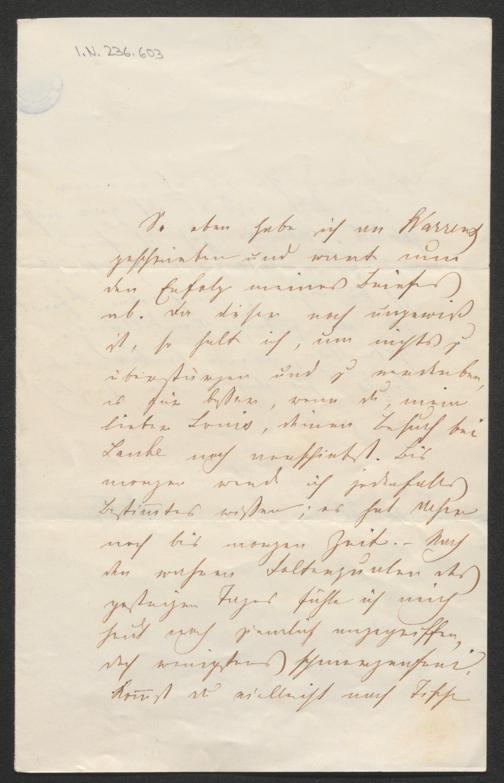 I.N. 236.603
So eben habe ich an Warrens
geschrieben und warte nun
den Erfolg meines Briefes
ab. Da dieser noch ungewiß
ist, so halt ich, um nichts zu
überstürzen und zu verderben,
es für besser, wenn du, mein
lieber Louis, deinen Besuch bei
Laube noch verschiebst. Bis
morgen werde ich jedenfalls
Bestimtes wissen; es hat daher
noch bis morgen Zeit. – Nach
den wahren Folterqualen des
gestrigen Tages fühle ich mich
heut noch ziemlich angegriffen,
doch wenigstens schmerzenfrei.
Komst du vielleicht nach Tische